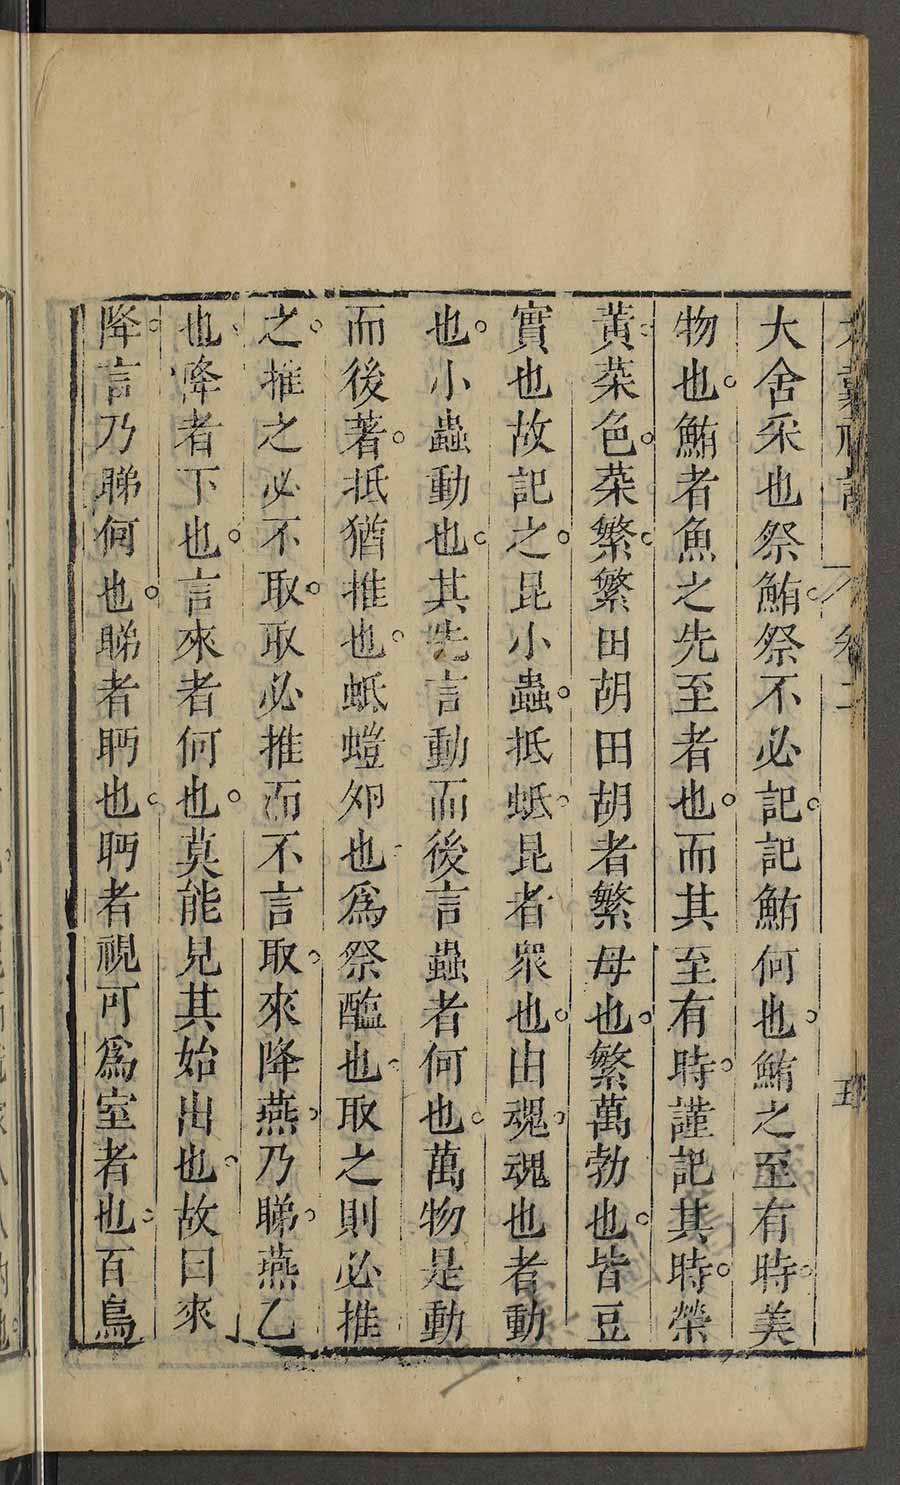 大戴禮記 卷二 五
大舍采也祭鮪祭不必記記鮪何也鮪之至有時美
物也鮪者魚之先至者也而其至有時謹記其時榮
黃菜色菜繁繁田胡田胡者繁母也繁萬勃也皆豆
實也故記之昆小蟲抵蚔昆者衆也由魂魂也者動
也小蟲動也其先言動而後言蟲者何也萬物是動
而後著抵猶推也蚔螘卵也爲祭醢也取之則必推
之推之必不取取必推而不言取來降燕乃睇燕乙
也降者下也言來者何也莫能見其始出也故曰來
降言乃睇何也睇者眄也眄者視可爲室者也百鳥